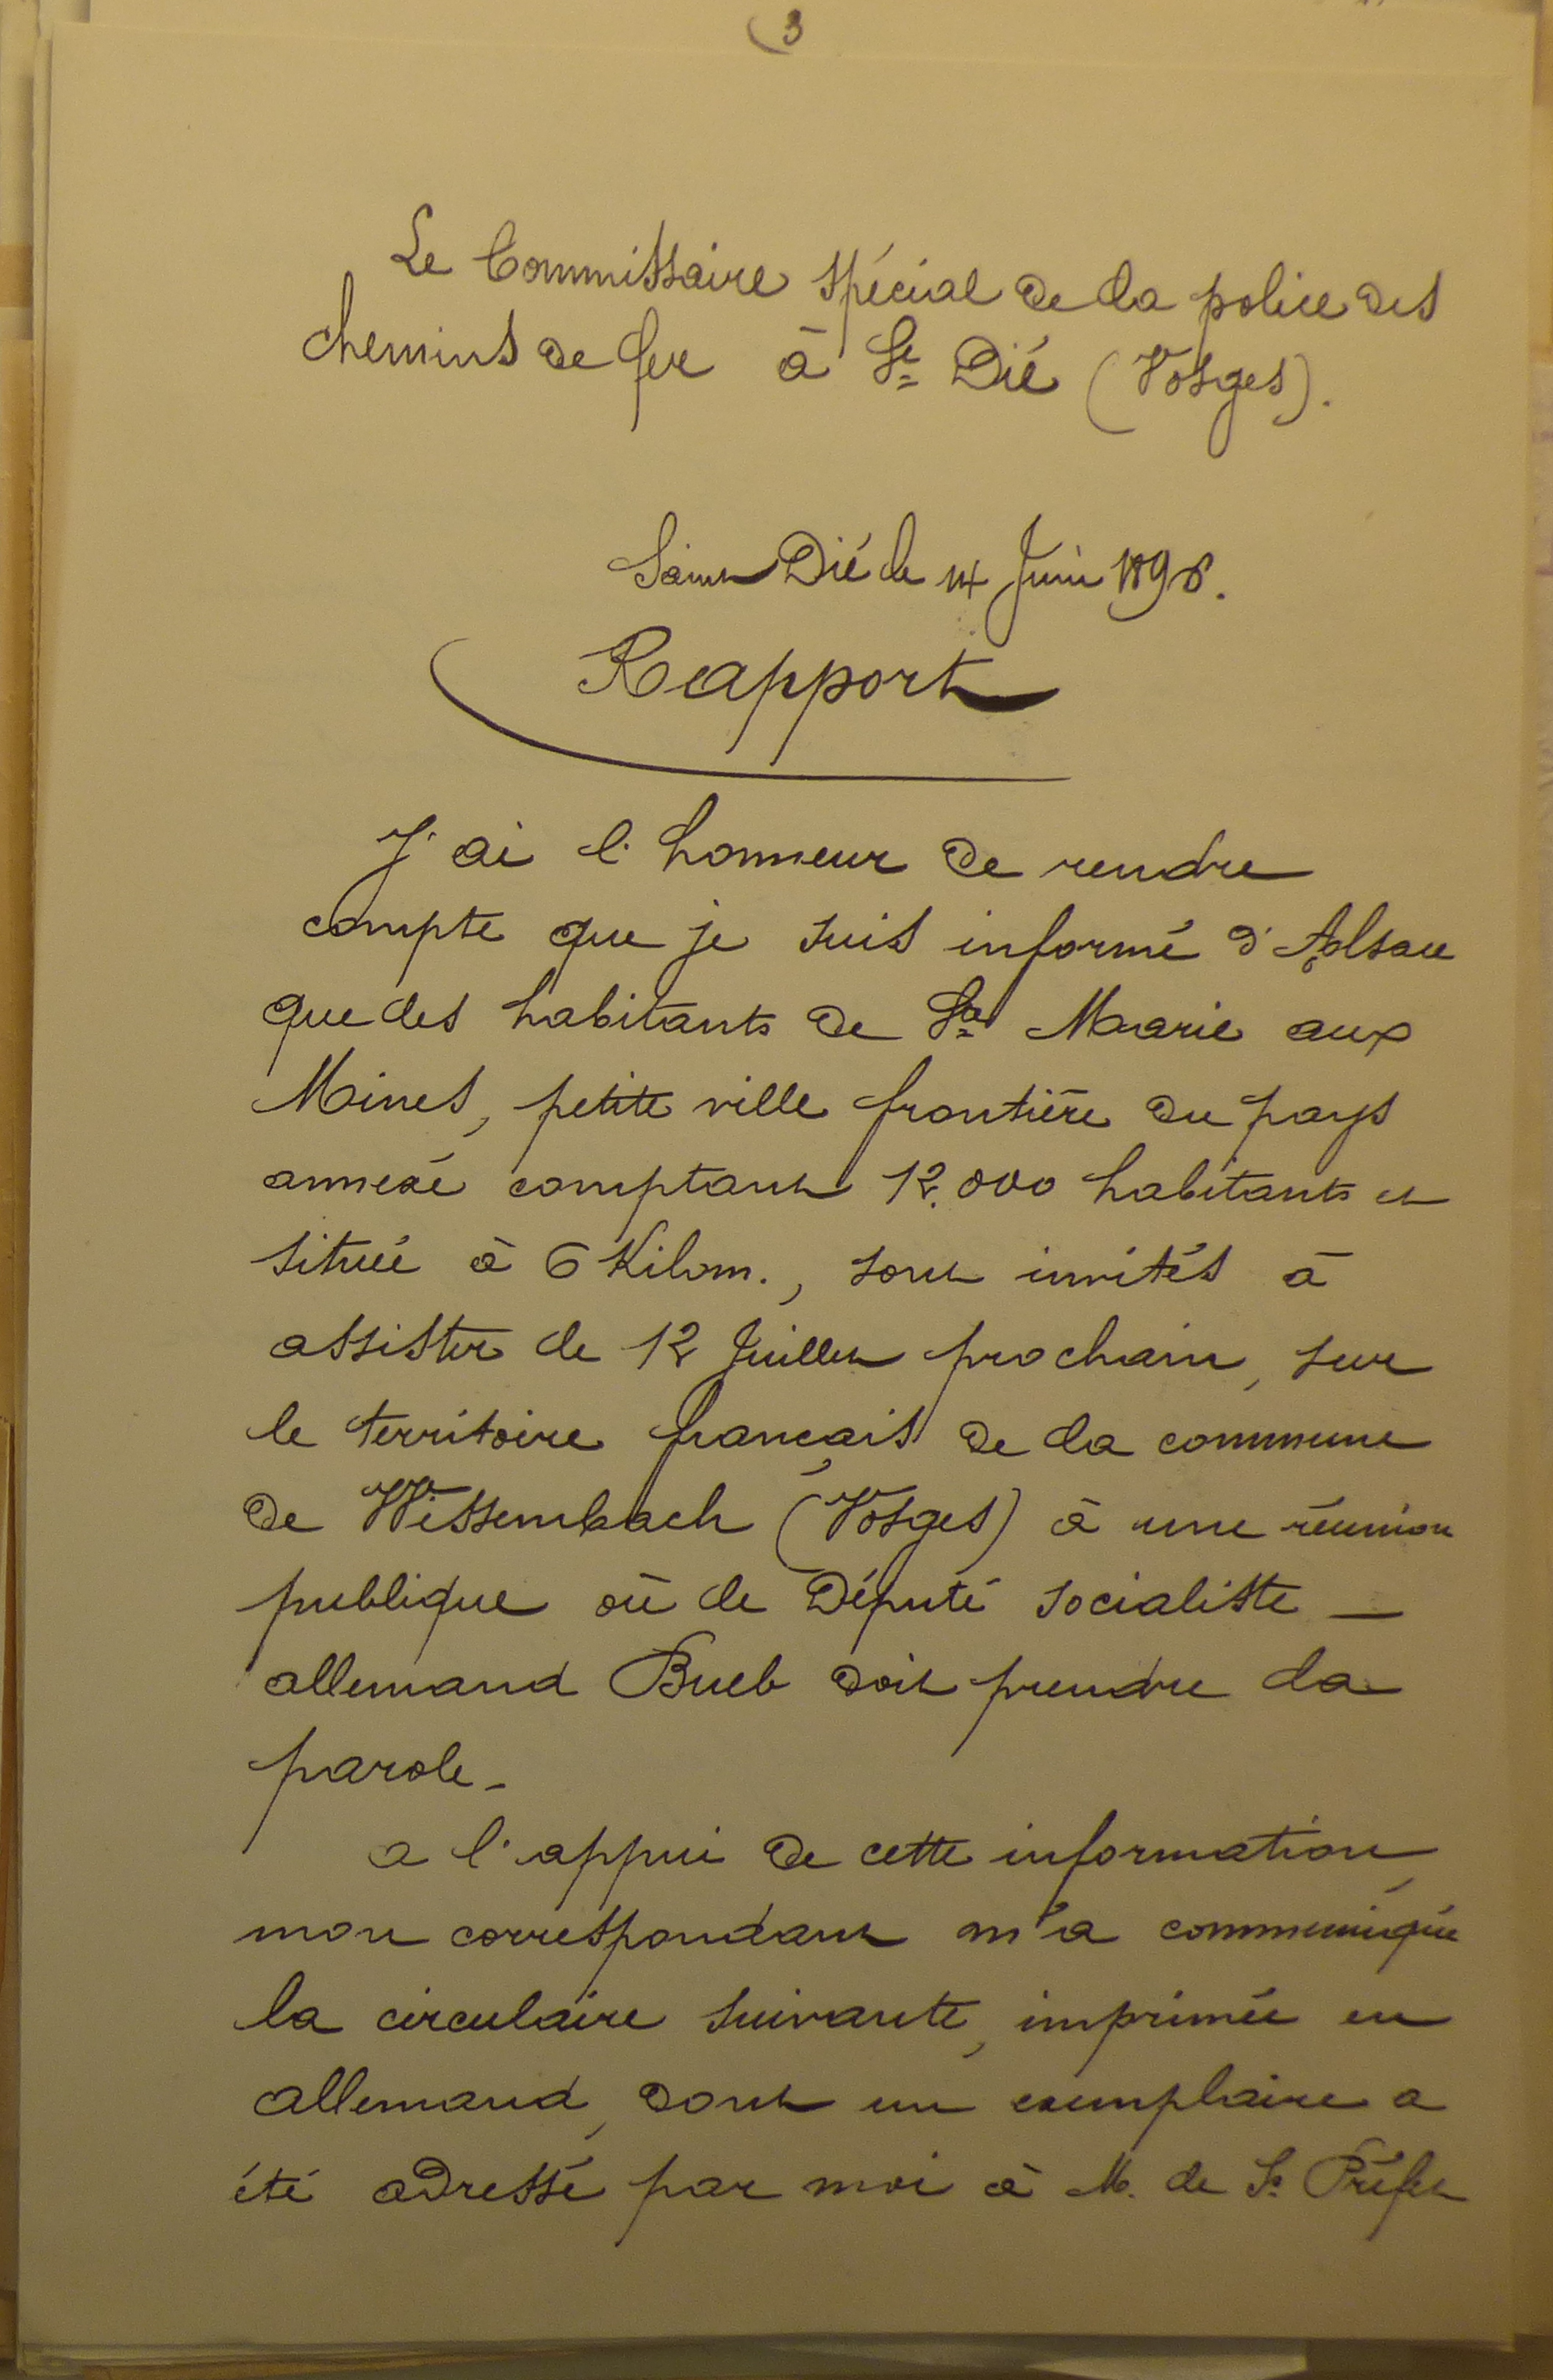 3
Le Commissaire spécial de la police des
chemins de fer à St Dié (Vosges).
Saint Dié le 14 Juin 1896.
Rapport
J'ai l'honneur de rendre
compte que je suis informé d'Alsace
que des habitants de Ste Marie aux
Mines, petite ville frontière du pays
annexé comptant 12.000 habitants et
située à 6 Kilom., sont invités à
assister le 12 Juillet prochain, sur
le territoire français de la commune
de Wissembach (Vosges) à une réunion
publique où le Député socialiste —
allemand Bueb doit prendre la
parole.
a l'appui de cette information,
mon correspondant m'a communiqué
la circulaire suivante, imprimée en
allemand, dont un exemplaire a
été adressé par moi à M. le S. Préfet